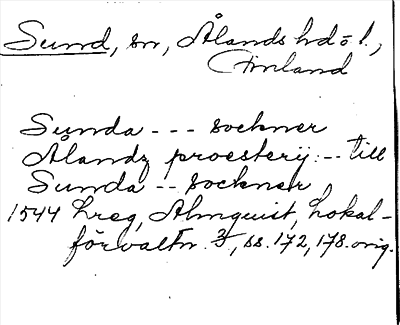 Sund, sn, Ålands hd o l.,
Finland
Sunda --- sockner
Ålandz proesterij --- till
Sunda -- sockner
1544 Lreg, Almquist, Lokal-
förvaltn. 3, ss. 172, 178. orig.